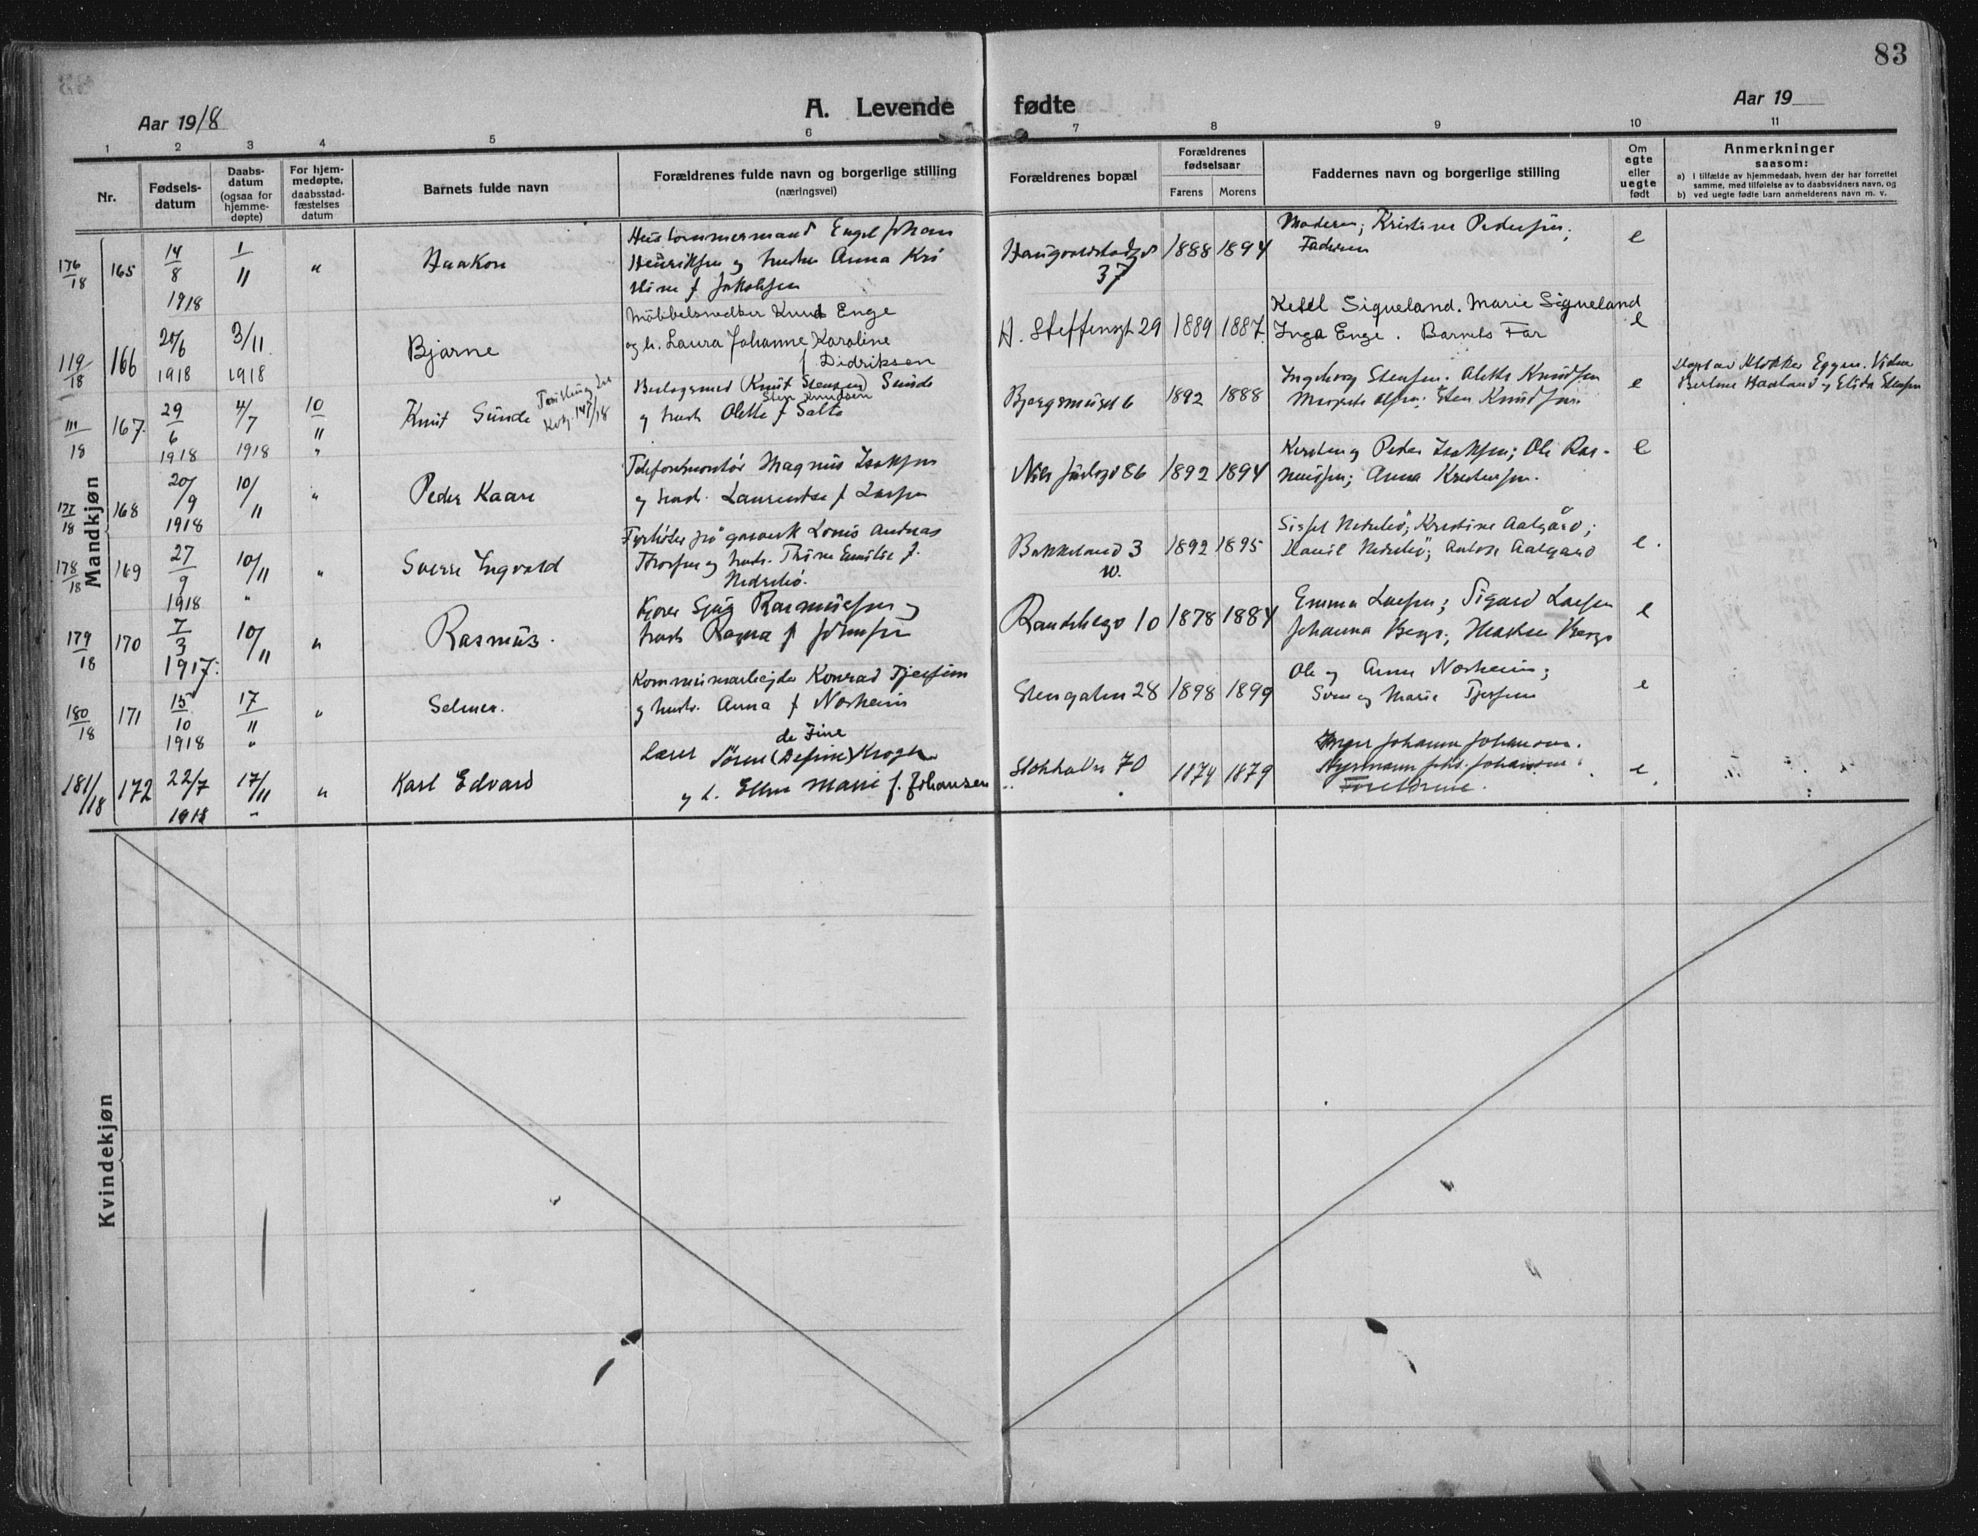 83
Aar 1918
A. Levende fødte
Aar 19
1 2 3 4 5 6 7 8 9 10 11
Nr.
Fødsels-
datum
Daabs-
datum
(ogsaa for
hjemme-
døpte)
For hjem-
medøpte,
daabsstad-
fæstelses
datum
Barnets fulde navn
Forældrenes fulde navn og borgerlige stilling
(næringsvei)
Forældrenes bopæl
Forældrenes
fødselsaar
Farens Morens
Faddernes navn og borgerlige stilling
Om
egte
eller
uegte
født
Anmerkninger
saasom:
a) I tilfælde av hjemmedaab, hvem der har forrettet
samme, med tilføielse av to daabsvidners navn, og
b) ved uegte fødte barn anmelderens navn m. v.
Mandkjøn
176/18 165 14/8 1918 1/11 " Haakon
Hustømmermand Engel Johan
Henriksen og hustru Anna Kri
stine f. Jakobsen
Haugvaldstadgd 37 1888 1894
Moderen; Kristine Pedersen;
Faderen
e
119/18 166 20/6 1918 3/11 1918 Bjarne
Möbbelsnedker Knud Enge
og h. Laura Johanne Karoline
f Didriksen
A. Steffensgt 29 1889 1887
Ketil Sigueland. Marie Sigueland
Inga Enge. Barnets Far
e
111/18 167. 29/6 1918 4/7 1918 10/11 " Knut Sunde
147/18
(Knut Stensen) Sunde
Sten Knudsen
og hustr. Olette f Salte
Bjergsmuget 6 1892 1888
Ingeborg Stensen. Alette Knudsen
Sten Knudsen
e
Døpt av Klokker Eggen. Vidner
Bertine Hadland og Elida Stensen
177/18 168 20/9 1918 10/11 " Peder Kaare
Telefonmontør Magnus Isaksen
og hustr. Laurentse f Larsen
Nils Juelsgd 86 1892 1894
Kirsten og Peder Isaksen; Ole Ras-
mussen; Anna Kristensen.
e
178/18 169 27/9 1918 10/11 " Sverre Ingvald
Fyrbøter på gasverk Louis Andreas
Thorsen og hustr. Thine Emilie f.
Nedrebø.
Bakkeland 3 1892 1895
Sissel Nedrebø; Kristine Aalgård;
Daniel Nedrebø; Aalgaard
e.
179/18 170 7/3 1917: 10/11 " Rasmus.
Kjører Rasmussen og
hustr. Ragna f Johnsen
Randebergv 10 1878 1884
Emma Larsen; Sigurd Larsen
Johanna Berge; Berge
e
180/18 171 15/10 1918 17/11 " Selmer.
Kommunearbejder Konrad Tjersen
og hustr. Anna f Norheim
Stengaten 28 1898 1899
Ole og Anna Norheim;
Sven og Marie Tjersen
e
181/18 172 22/7 1918 17/11 " Karl Edvard
de Fine
Lærer Sören (Define) Krogh
og h. Ellen Marie f. Johansen
Stokkaln 70 1874 1879
Inger Johanne Johansen.
Styrmann Johs. Johansen.
Foreldrene.
e.
Kvindekjøn